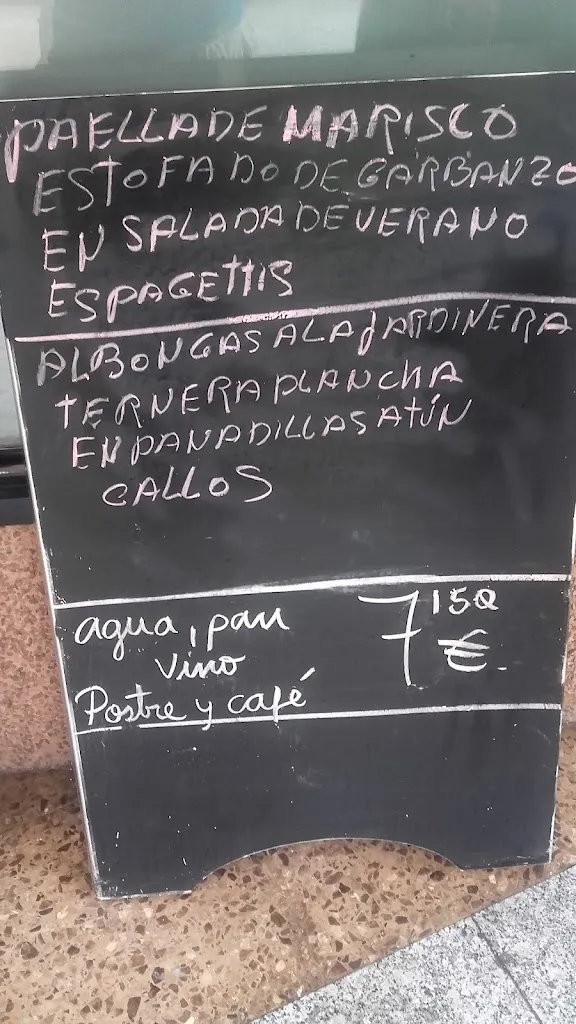 PAELLA DE MARISCO
ESTOFADO DE GARBANZO
ENSALADA DE VERANO
ESPAGETTIS
ALBONGAS A LA JARDINERA
TERNERA PLANCHA
ENPANADILLAS ATÚN
CALLOS
agua, pan 7,50
vino €
Postre y café